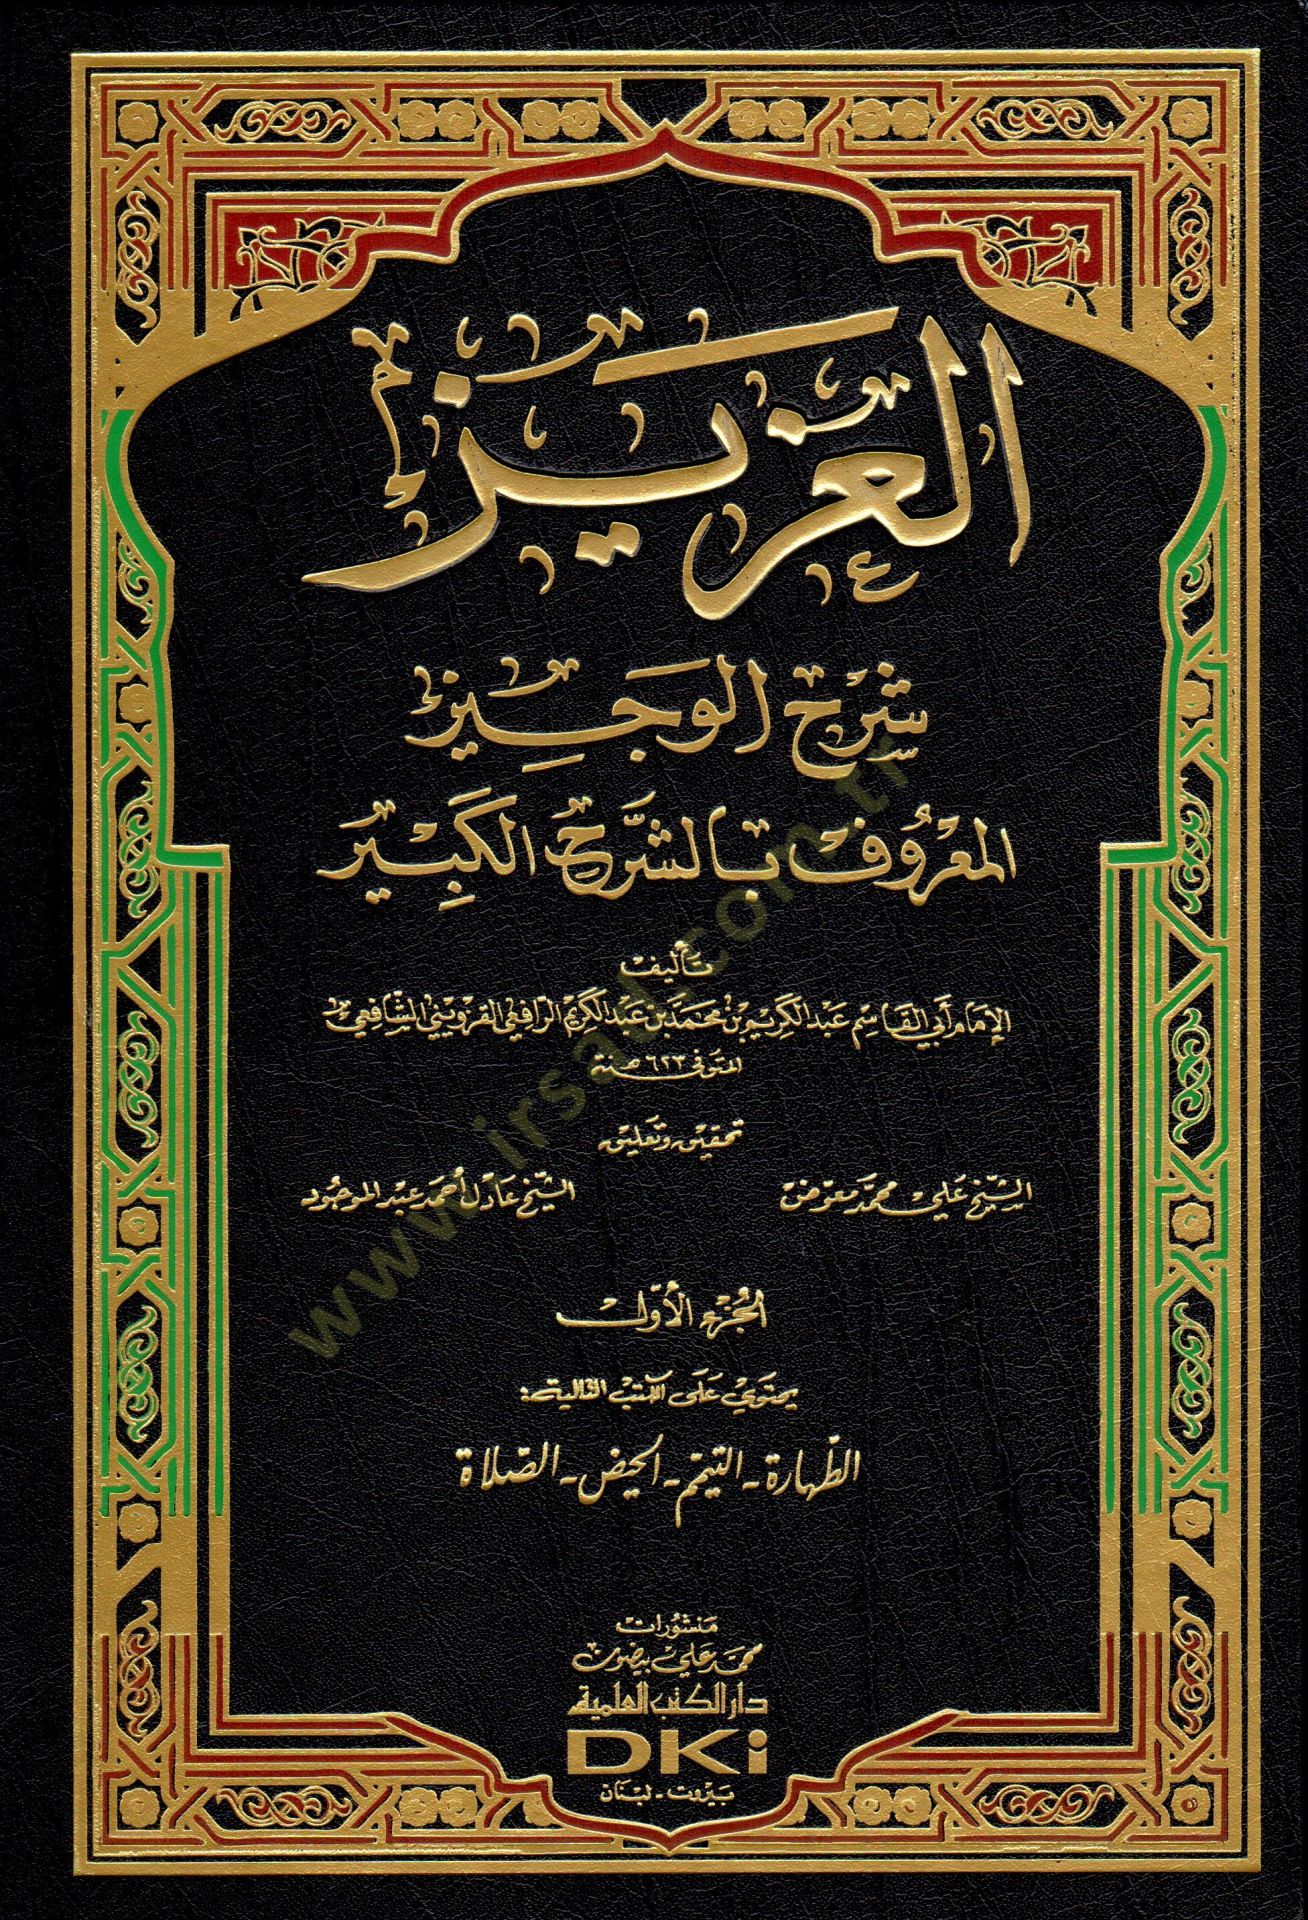 العزيز
شرح الوجيز
المعروف بالشرح الكبير
تأليف
الإمام أبي القاسم عبد الكريم بن محمد بن عبد الكريم الرافعي القزويني الشافعي
المتوفى ٦٢٣ هـ سنة
تحقيق وتعليق
الشيخ علي محمد معوض الشيخ عادل أحمد عبد الموجود
الجزء الأول
يحتوي على الكتب التالية:
الطهارة - التيمم - الحيض - الصلاة
منشورات
محمد علي بيضون
دار الكتب العلمية
DKi
بيروت - لبنان
www.irsad.com.tr